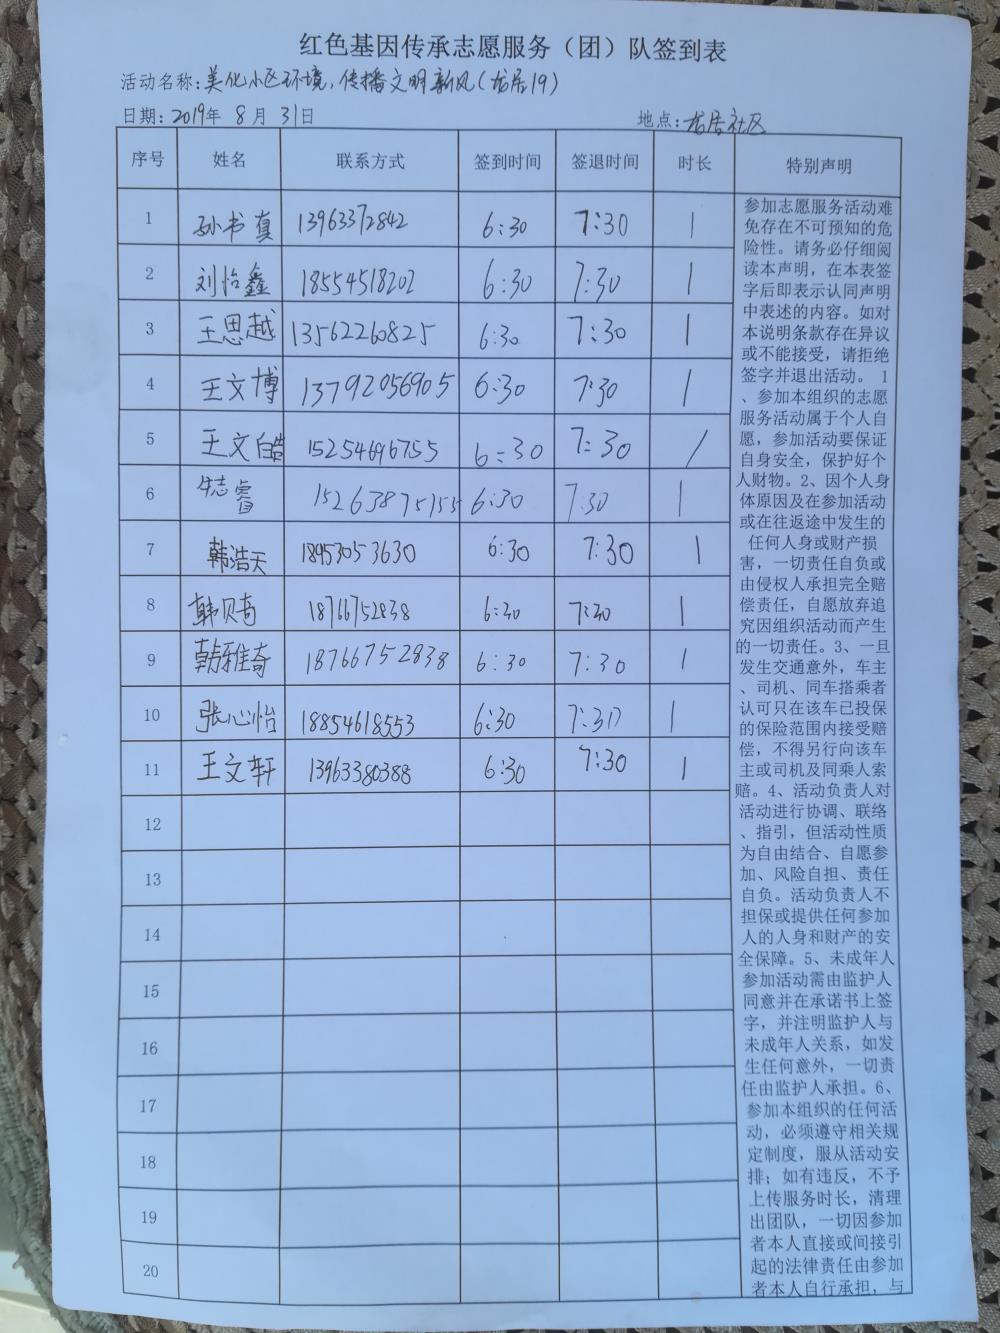 红色基因传承志愿服务（团）队签到表
活动名称：美化小区环境，传播文明新风（龙居19）
日期：2019年 8 月 31日 地点：龙居社区
序号 姓名 联系方式 签到时间 签退时间 时长 特别声明
1 孙书真 13963372842 6:30 7:30 1
2 刘怡鑫 18554518202 6:30 7:30 1
3 王思越 13562260825 6:30 7:30 1
4 王文博 13792056905 6:30 7:30 1
5 王文皓 15254696755 6:30 7:30 1
6 牛志睿 15263875155 6:30 7:30 1
7 韩浩天 18953053630 6:30 7:30 1
8 韩贝奇 18766752838 6:30 7:30 1
9 韩雅奇 18766752838 6:30 7:30 1
10 张心怡 18854618553 6:30 7:30 1
11 王文轩 13963380388 6:30 7:30 1
12
13
14
15
16
17
18
19
20
参加志愿服务活动难
免存在不可预知的危
险性。请务必仔细阅
读本声明，在本表签
字后即表示认同声明
中表述的内容。如对
本说明条款存在异议
或不能接受，请拒绝
签字并退出活动。 1
、参加本组织的志愿
服务活动属于个人自
愿，参加活动要保证
自身安全，保护好个
人财物。2、因个人身
体原因及在参加活动
或在往返途中发生的
任何人身或财产损
害，一切责任自负或
由侵权人承担完全赔
偿责任，自愿放弃追
究因组织活动而产生
的一切责任。3、一旦
发生交通意外，车主
、司机、同车搭乘者
认可只在该车已投保
的保险范围内接受赔
偿，不得另行向该车
主或司机及同乘人索
赔。4、活动负责人对
活动进行协调、联络
、指引，但活动性质
为自由结合、自愿参
加、风险自担、责任
自负。活动负责人不
担保或提供任何参加
人的人身和财产的安
全保障。5、未成年人
参加活动需由监护人
同意并在承诺书上签
字，并注明监护人与
未成年人关系，如发
生任何意外，一切责
任由监护人承担。6、
参加本组织的任何活
动，必须遵守相关规
定制度，服从活动安
排；如有违反，不予
上传服务时长，清理
出团队，一切因参加
者本人直接或间接引
起的法律责任由参加
者本人自行承担，与